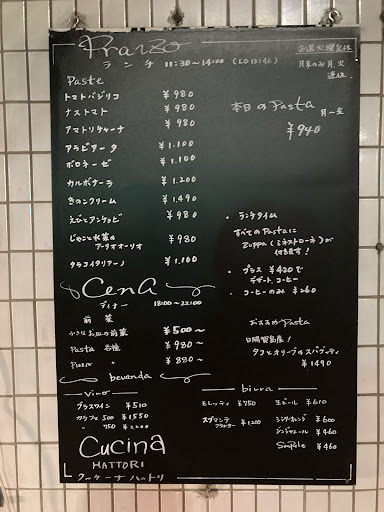 Pranzo
ランチ 11:30〜14:00 (LO 13:40)
毎週火曜定休
月末のみ月火
連休
Paste
トマトバジリコ ¥980
ナストマト ¥980
アマトリチャーナ ¥980
アラビアータ ¥1.100
ボロネーゼ ¥1.100
カルボナーラ ¥1.200
きのこクリーム ¥1.490
えびとアンチョビ ¥980
じゃこと水菜の
アーリオオーリオ ¥980
タラコイタリアーノ ¥1.100
本日のPasta 月〜金
¥940
・ランチタイム
すべてのPastaに
Zuppa(ミネストローネ)が
付きます!
・プラス ¥420で
デザート、コーヒー
・コーヒーのみ ¥260
Cena
ディナー 18:00〜22:00
前菜
小さなお皿の前菜 ¥500〜
Pasta 各種 ¥980〜
Pizza 〃 ¥880〜
おススめPasta
日間賀島産!
タコとオリーブのスパゲッティ
¥1490
bevanda
vino
グラスワイン ¥510
カラフェ 500 ¥1550
750 ¥2.200
biura
モレッティ ¥750
生ビール ¥610
スプマンテ
¥1210
シャンディガフ ¥600
ジンジャエール ¥460
¥460
Cucina
HATTORI
クーチーナ ハットリ